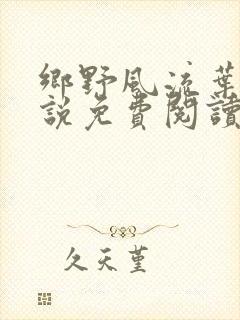 鄉野風流葉
說免費閱讀
久天堇